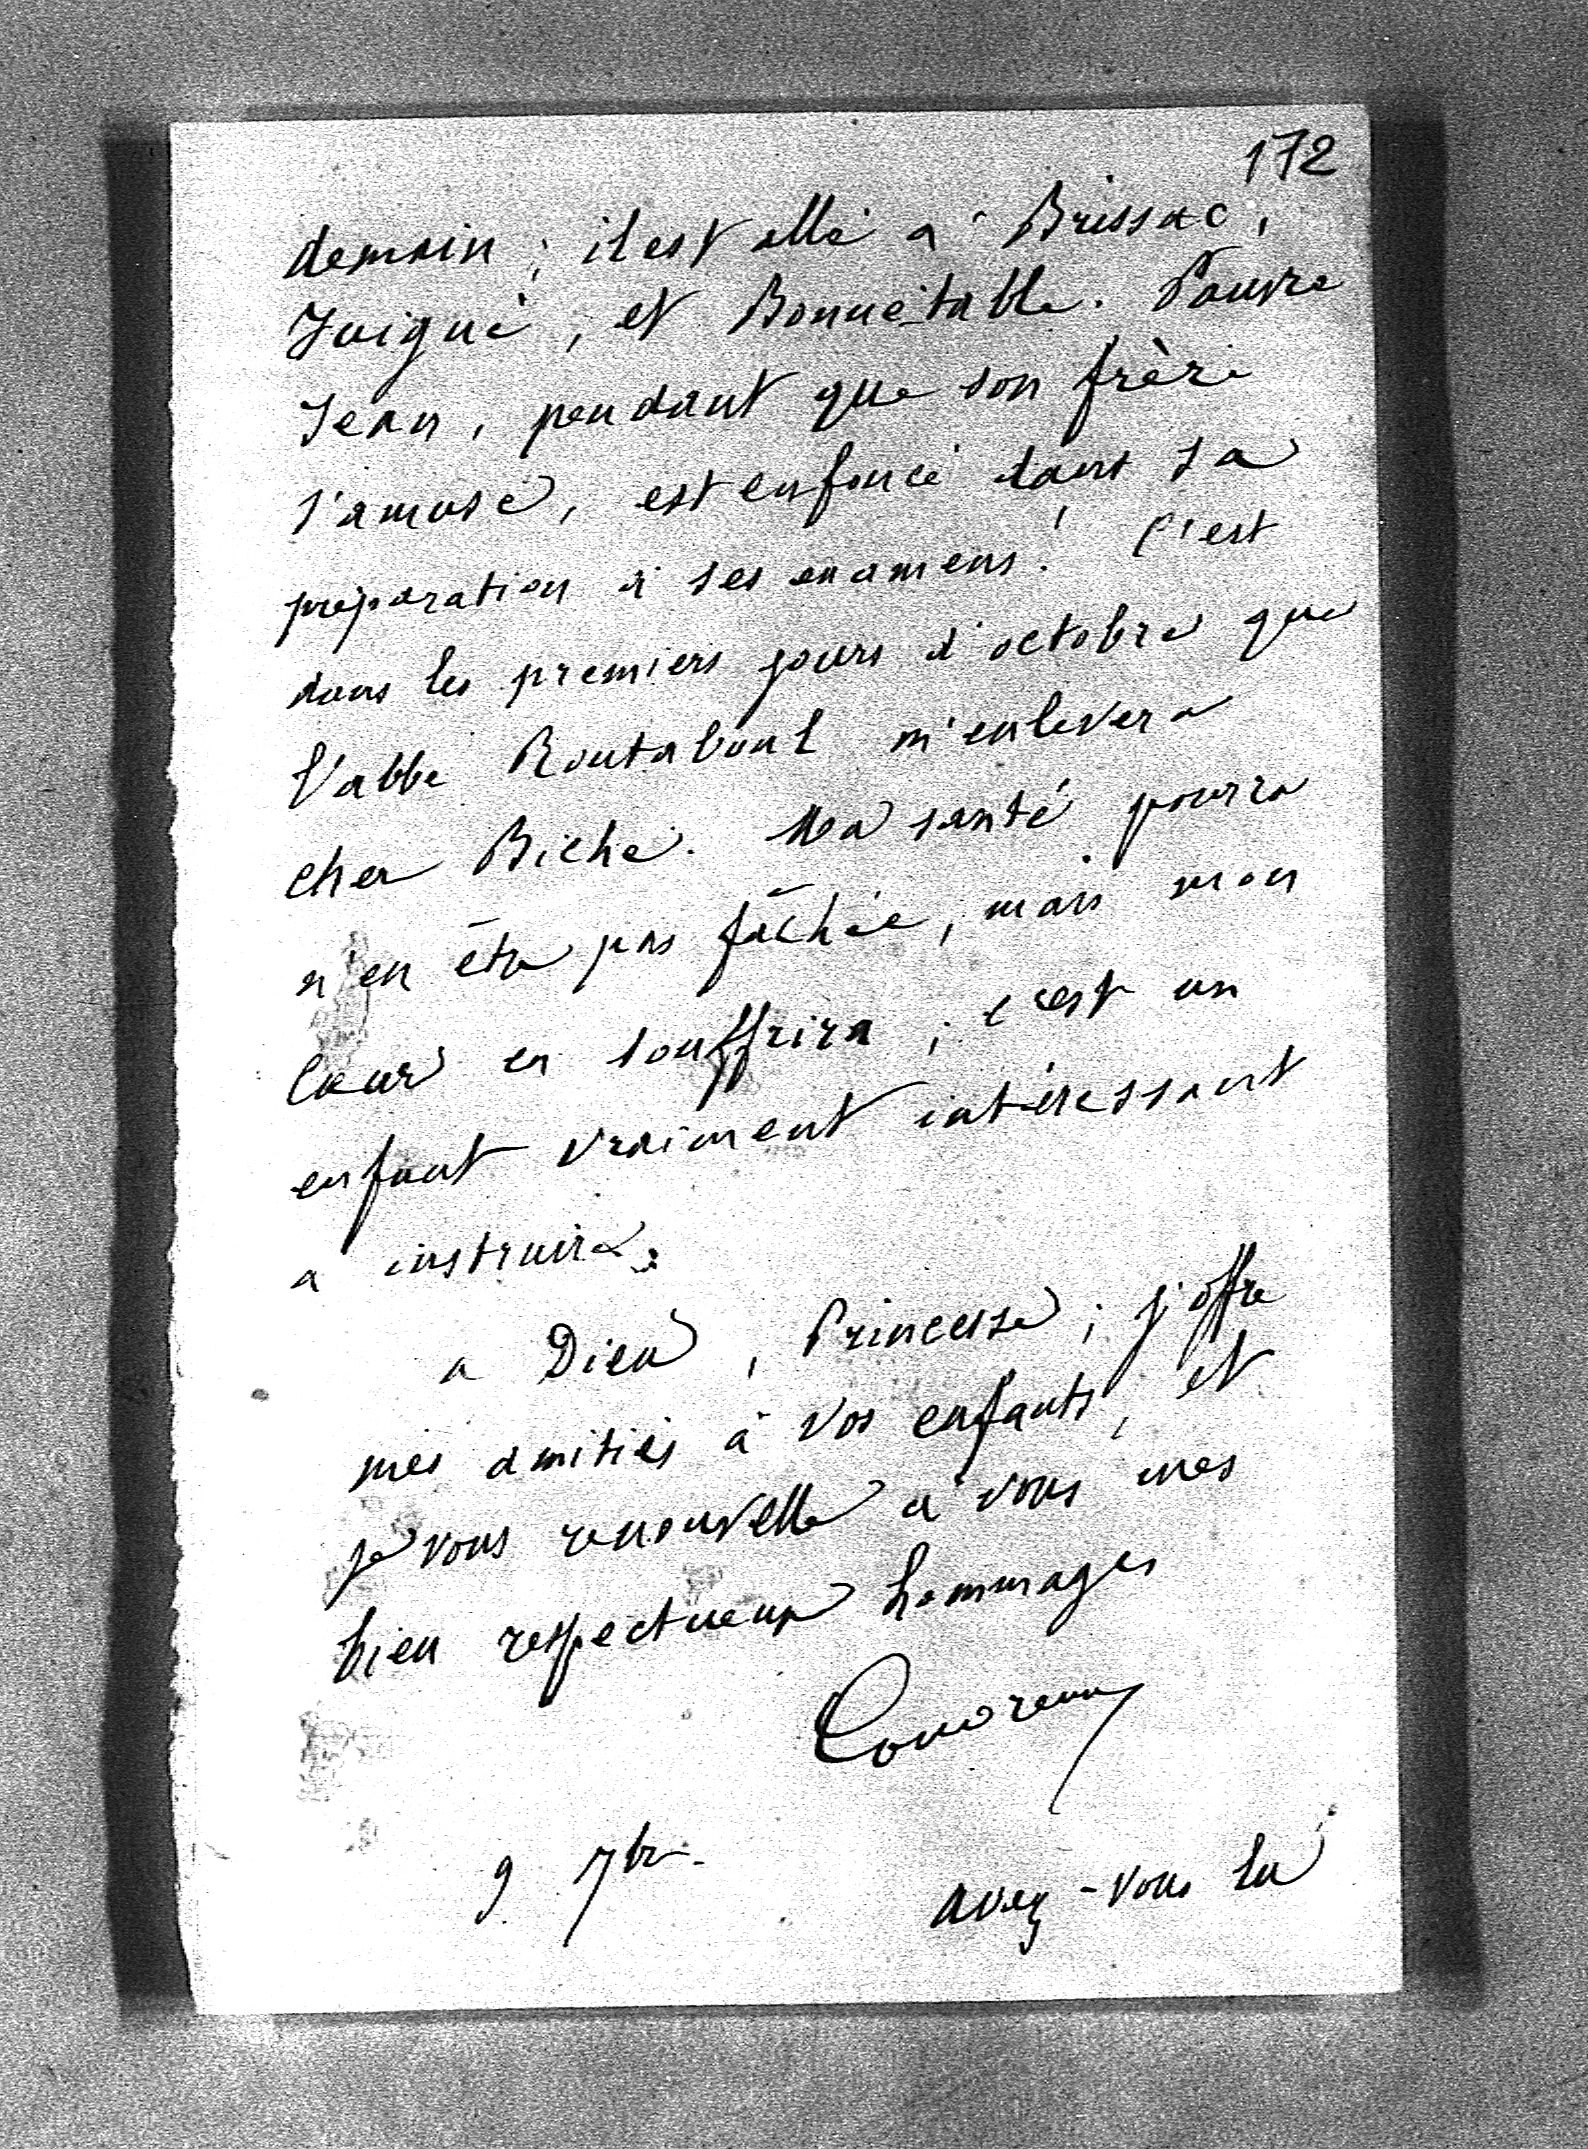 172
demain ; il est allé à Brissac,
Juigné, et Bonnétable. Pauvre
Jean, pendant que son frère
s'amuse, est enfoncé dans sa
préparation à ses examens ! C'est
dans les premiers jours d'octobre que
l'abbé Routaboul m'enlèvera
cher Biche. Ma santé pourra
n'en être pas fâchée, mais mon
cœur en souffrira ; c'est un
enfant vraiment intéressant
a instruire.
a Dieu, Princesse ; j'offre
mes amitiés à vos enfants, et
je vous renouvelle à vous mes
bien respectueux hommages
9 7bre.
avez-vous lu